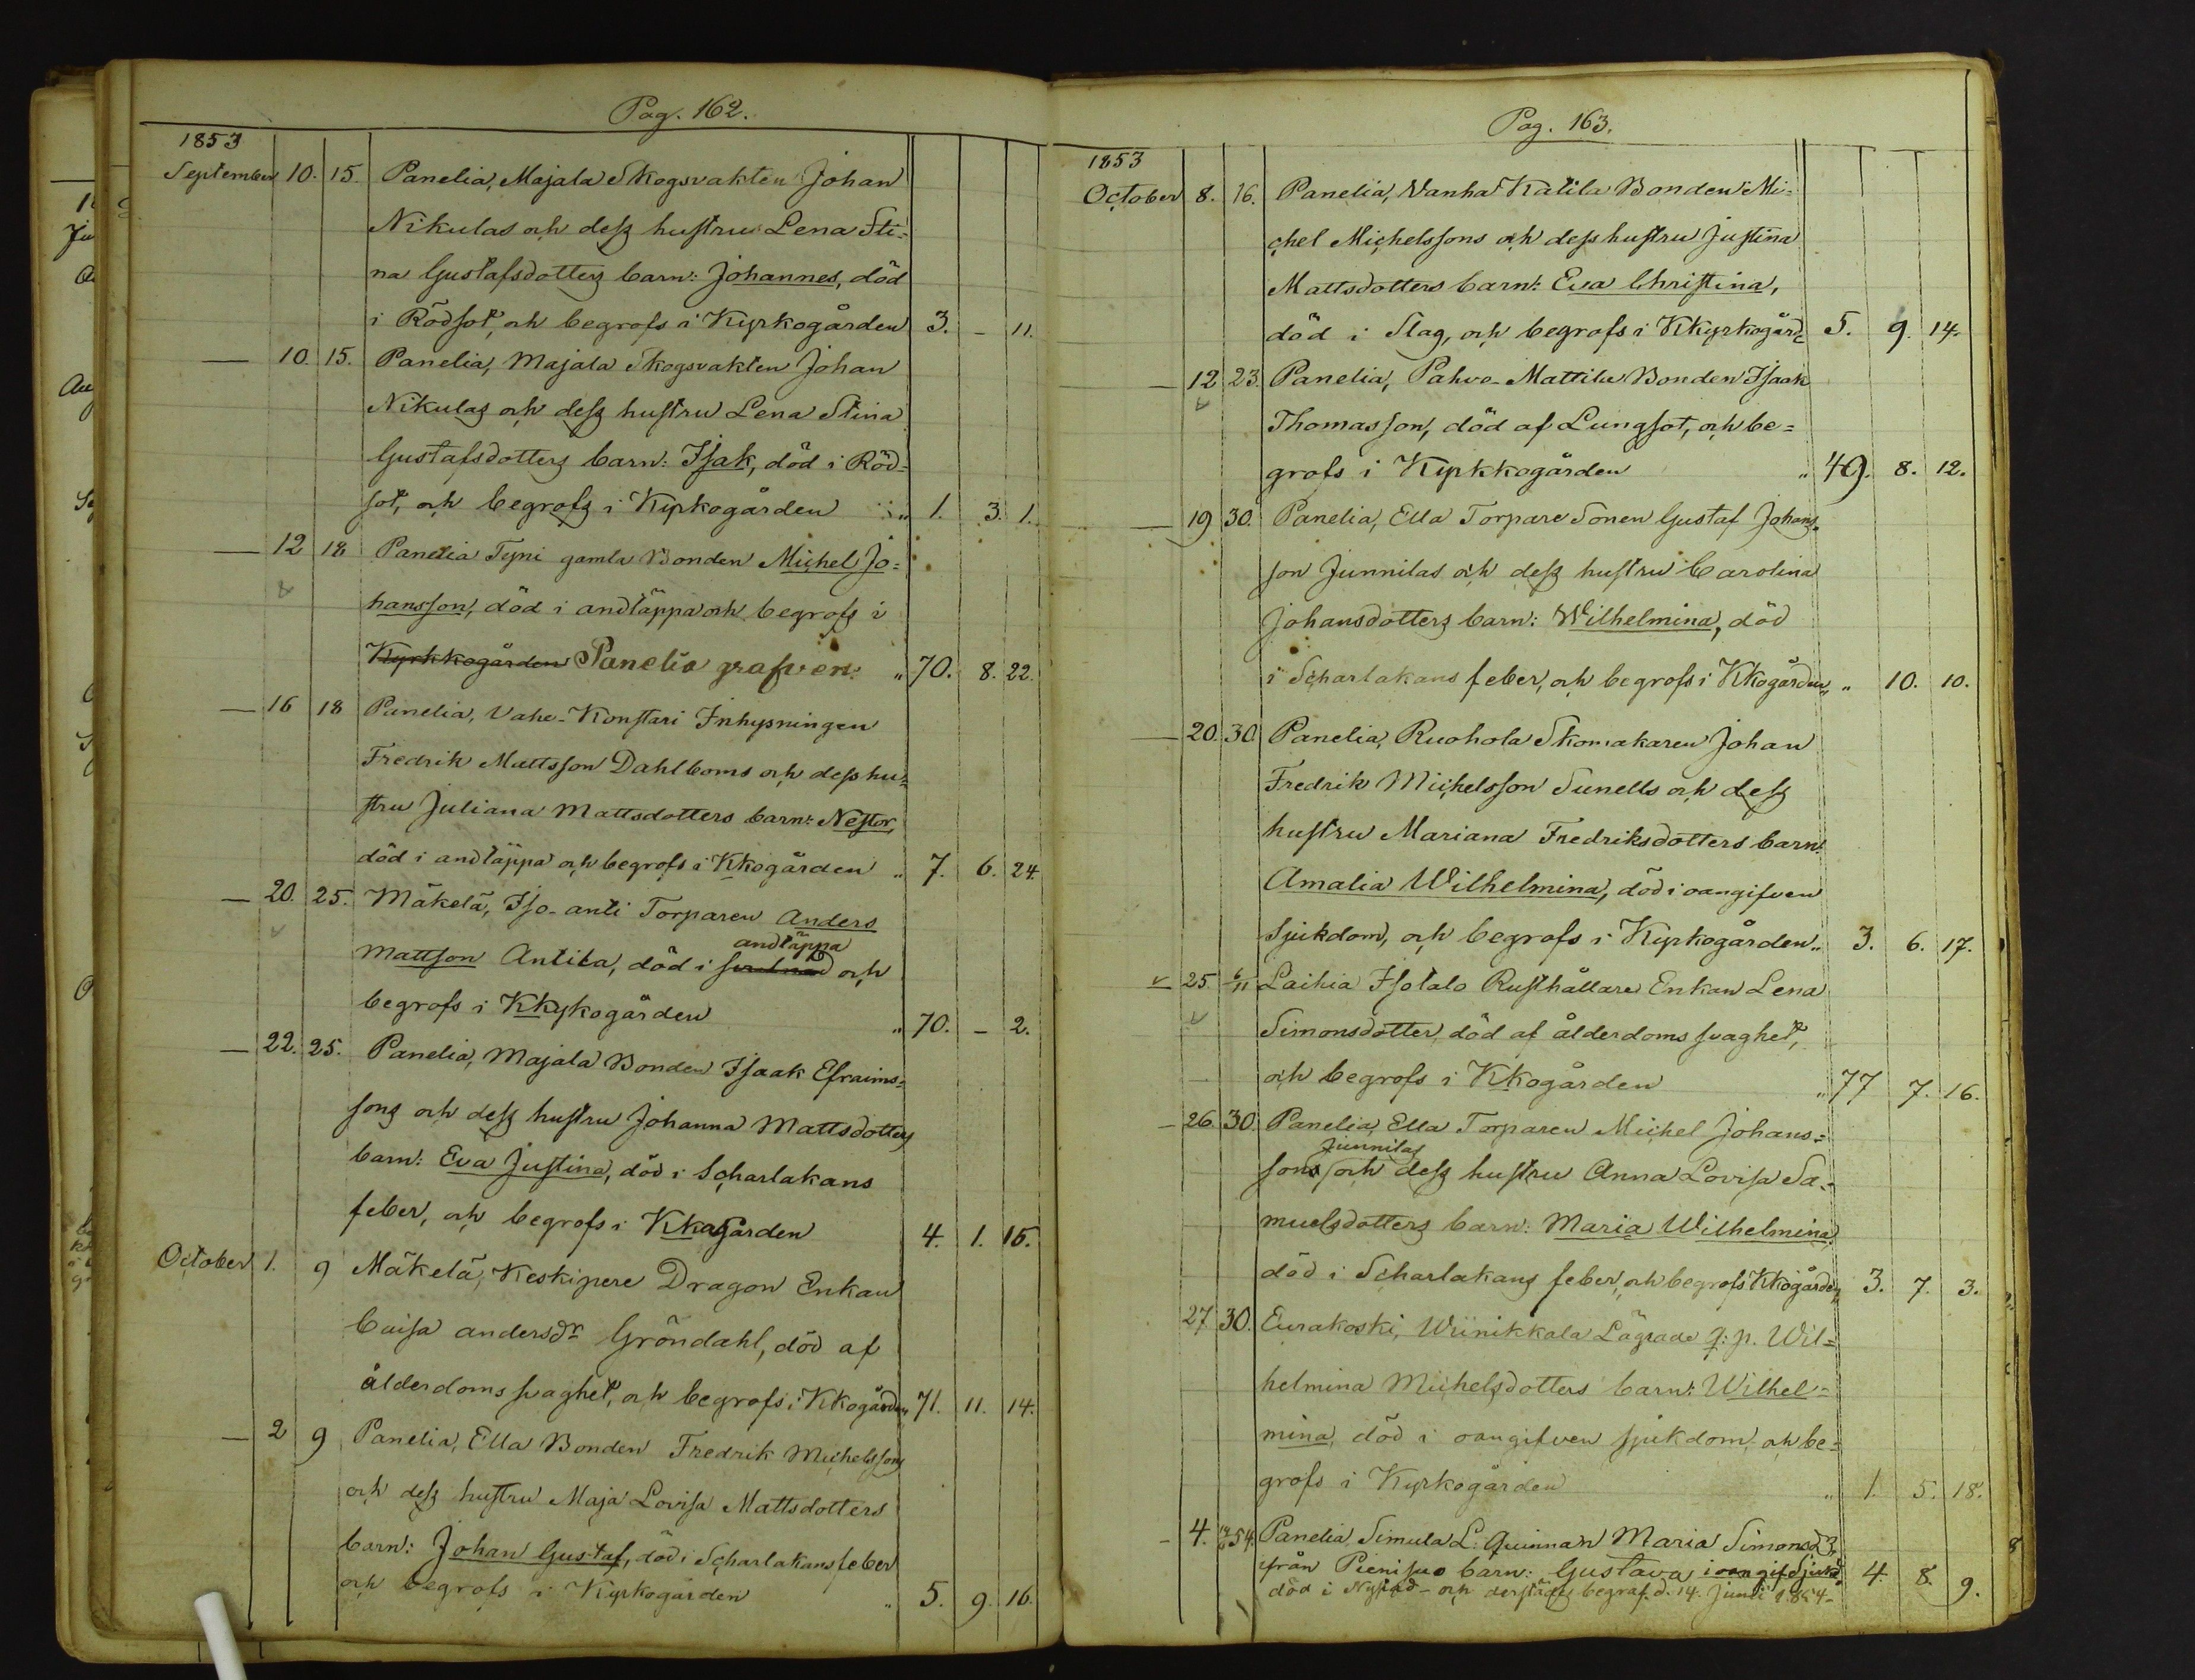 Pag. 162.
1853
September 10. 15. Panelia, Majala Skogsvakten Johan
Nikulas och dess hustru Lena Sti=
na Gustafsdotters barn: Johannes, död
i Rödsot, och begrofs i Kyrkogården 3. - 11.
— 10. 15. Panelia, Majala Skogsvakten Johan
Nikulas och dess hustru Lena Stina
Gustafsdotters barn: Isak, död i Röd=
sot, och begrofs i Kyrkogården " 1. 3. 1.
— 12 18 Panelia Tyni gamla Bonden Michel Jo=
hansson, död i andtäppa och begrofs i
Kyrkkogården Panelia grafven. " 70. 8. 22.
— 16 18 Panelia, Vahe-Konstari Inhysningen
Fredrik Mattsson Dahlboms och dess hu=
stru Juliana Mattsdotters barn: Nestor,
död i andtäppa och begrofs i Kkogården " 7. 6. 24.
— 20. 25. Mäkelä, Iso-anti Torparen Anders
andtäppa
Mattson Antila, död i och
begrofs i Kkykogården " 70. - 2.
— 22. 25. Panelia, Majala Bonden Isaak Efraims=
sons och dess hustru Johanna Mattsdotters
barn: Eva Justina, död i Scharlakans
feber, och begrofs i Kkogården 4. 1. 15.
October 1. 9 Mäkelä, Keskipere Dragon Enkan
Caisa andersdr Gröndahl, död af
ålderdoms svaghet, och begrofs i Kkogården 71. 11. 14.
— 2 9 Panelia, Ella Bonden Fredrik Michelssons
och dess hustru Maja Lovisa Mattsdotters
barn: Johan Gustaf, död i Scharlakans feber
och begrofs i Kyrkogården " 5. 9. 16.
Pag. 163.
1853
October 8. 16. Panelia, Vanha Katila Bonden Mi=
chel Michelssons och dess hustru Justina
Mattsdotters barn: Eva Christina,
död i Slag, och begrofs i Kkyrkogård 5. 9. 14.
— 12 23. Panelia, Pahvo-Mattila Bonden Isaak
Thomasson, död af Lungsot, och be=
grofs i Kyrkkogården " 49. 8. 12.
— 19 30. Panelia, Ella Torpare Sonen Gustaf Johans=
son Junnilas och dess hustru Carolina
Johansdotters barn: Wilhelmina, död
i Scharlakans feber, och begrofs i Kkogården, " 10. 10.
— 20. 30. Panelia, Ruohola Skomakaren Johan
Fredrik Michelsson Sunells och dess
hustru Mariana Fredriksdotters barn:
Amalia Wilhelmina, död i oangifven
Sjukdom, och begrofs i Kyrkogården " 3. 6. 17.
25. 6/11 Laihia Isotalo Rusthållare Enkan Lena
Simonsdotter, död af ålderdoms svaghet,
och begrofs i Kkogården " 77 7. 16.
— 26. 30. Panelia, Ella Torparen Michel Johans=
Junnilas
sons och dess hustru Anna Lovisa Sa=
muelsdotters barn: Maria Wilhelmina,
död i Scharlakans feber, och begrofs Kkogården 3. 7. 3.
27 30. Eurakoski, Wiinikkala Lägrade q: p. Wil=
helmina Michelsdotters barn: Wilhel=
mina, död i oangifven sjukdom, och be=
grofs i Kyrkogården " 1. 5. 18.
— 4. 54. Panelia, Simula L: Quinnan Maria Simonsdr
ifrån barn: Gustava i oangif Sjukd. 4. 8. 9.
död i Nystad - och derstädes begraf. d. 14. Junii 1854-